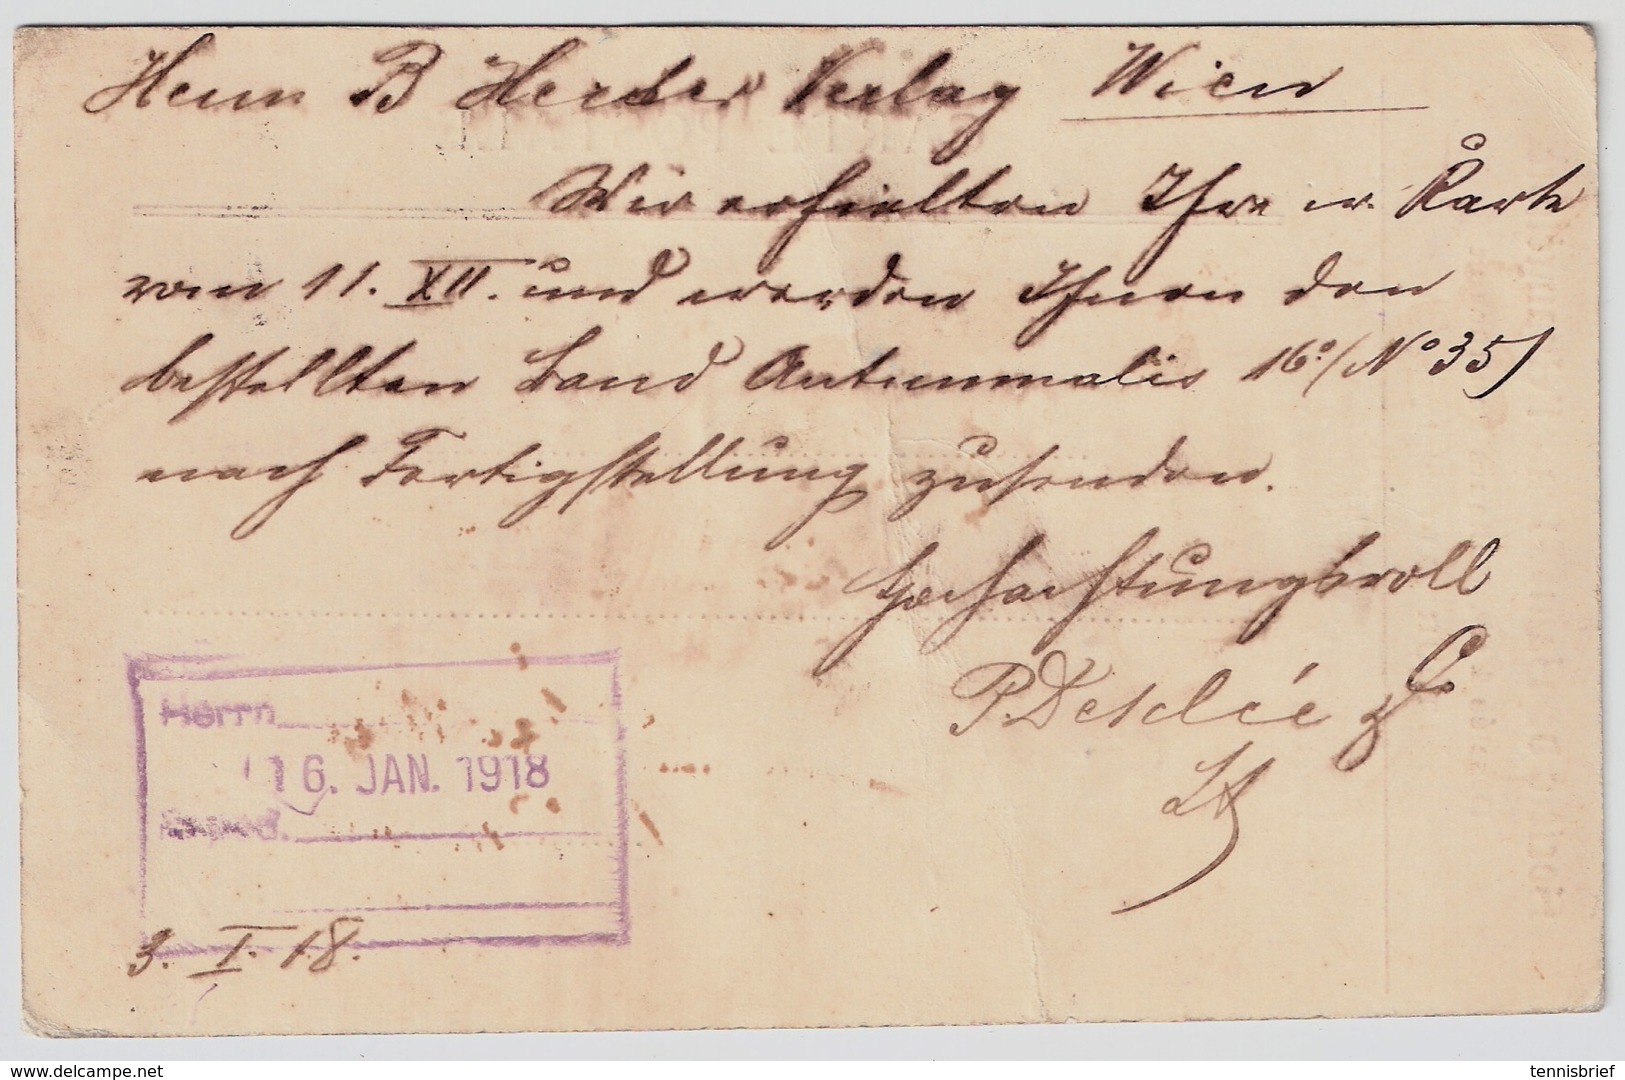 Herrn B Herder Verlag Wien
Wir erhielten Ihre w. Karte
vom 11. XII. und werden Ihnen den
bestellten Band Autumnalis 16°/ (N° 35)
nach Fertigstellung zusenden.
Hochachtungsvoll
P. Desclée &
Herrn
16. JAN. 1918
3. I. 18.
www.delcampe.net
tennisbrief